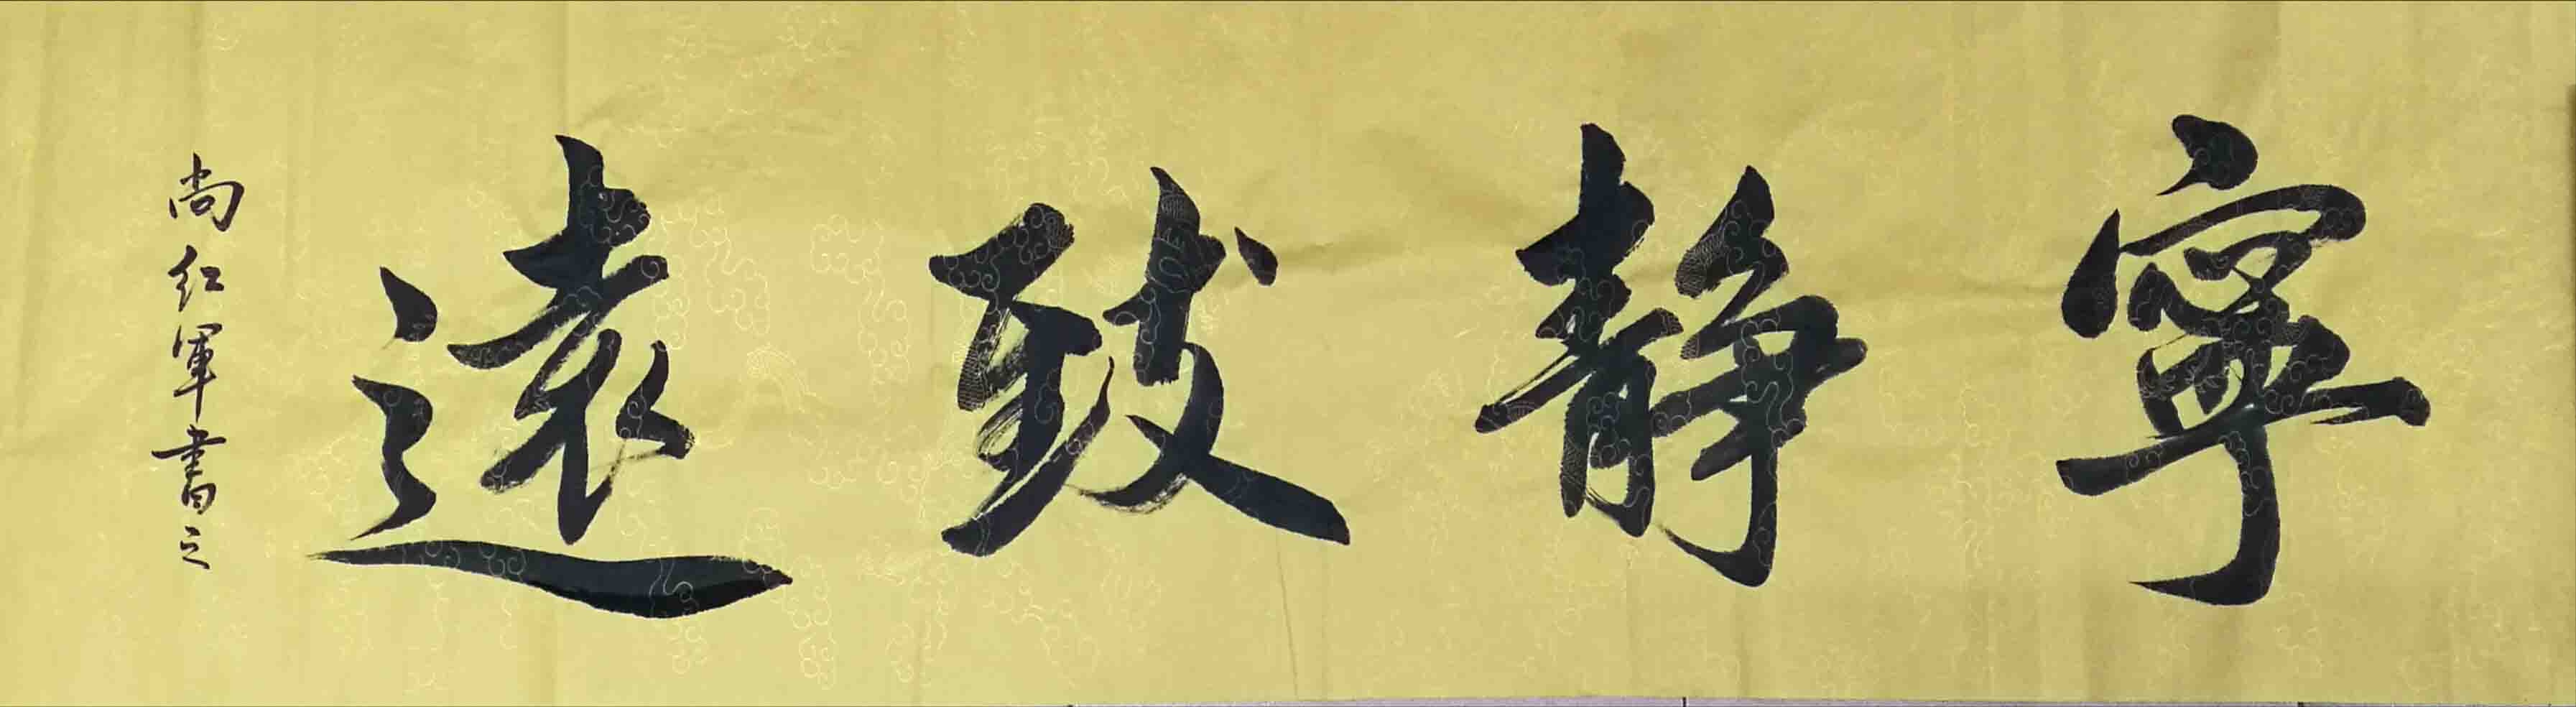 寧靜致遠
尚红軍書之